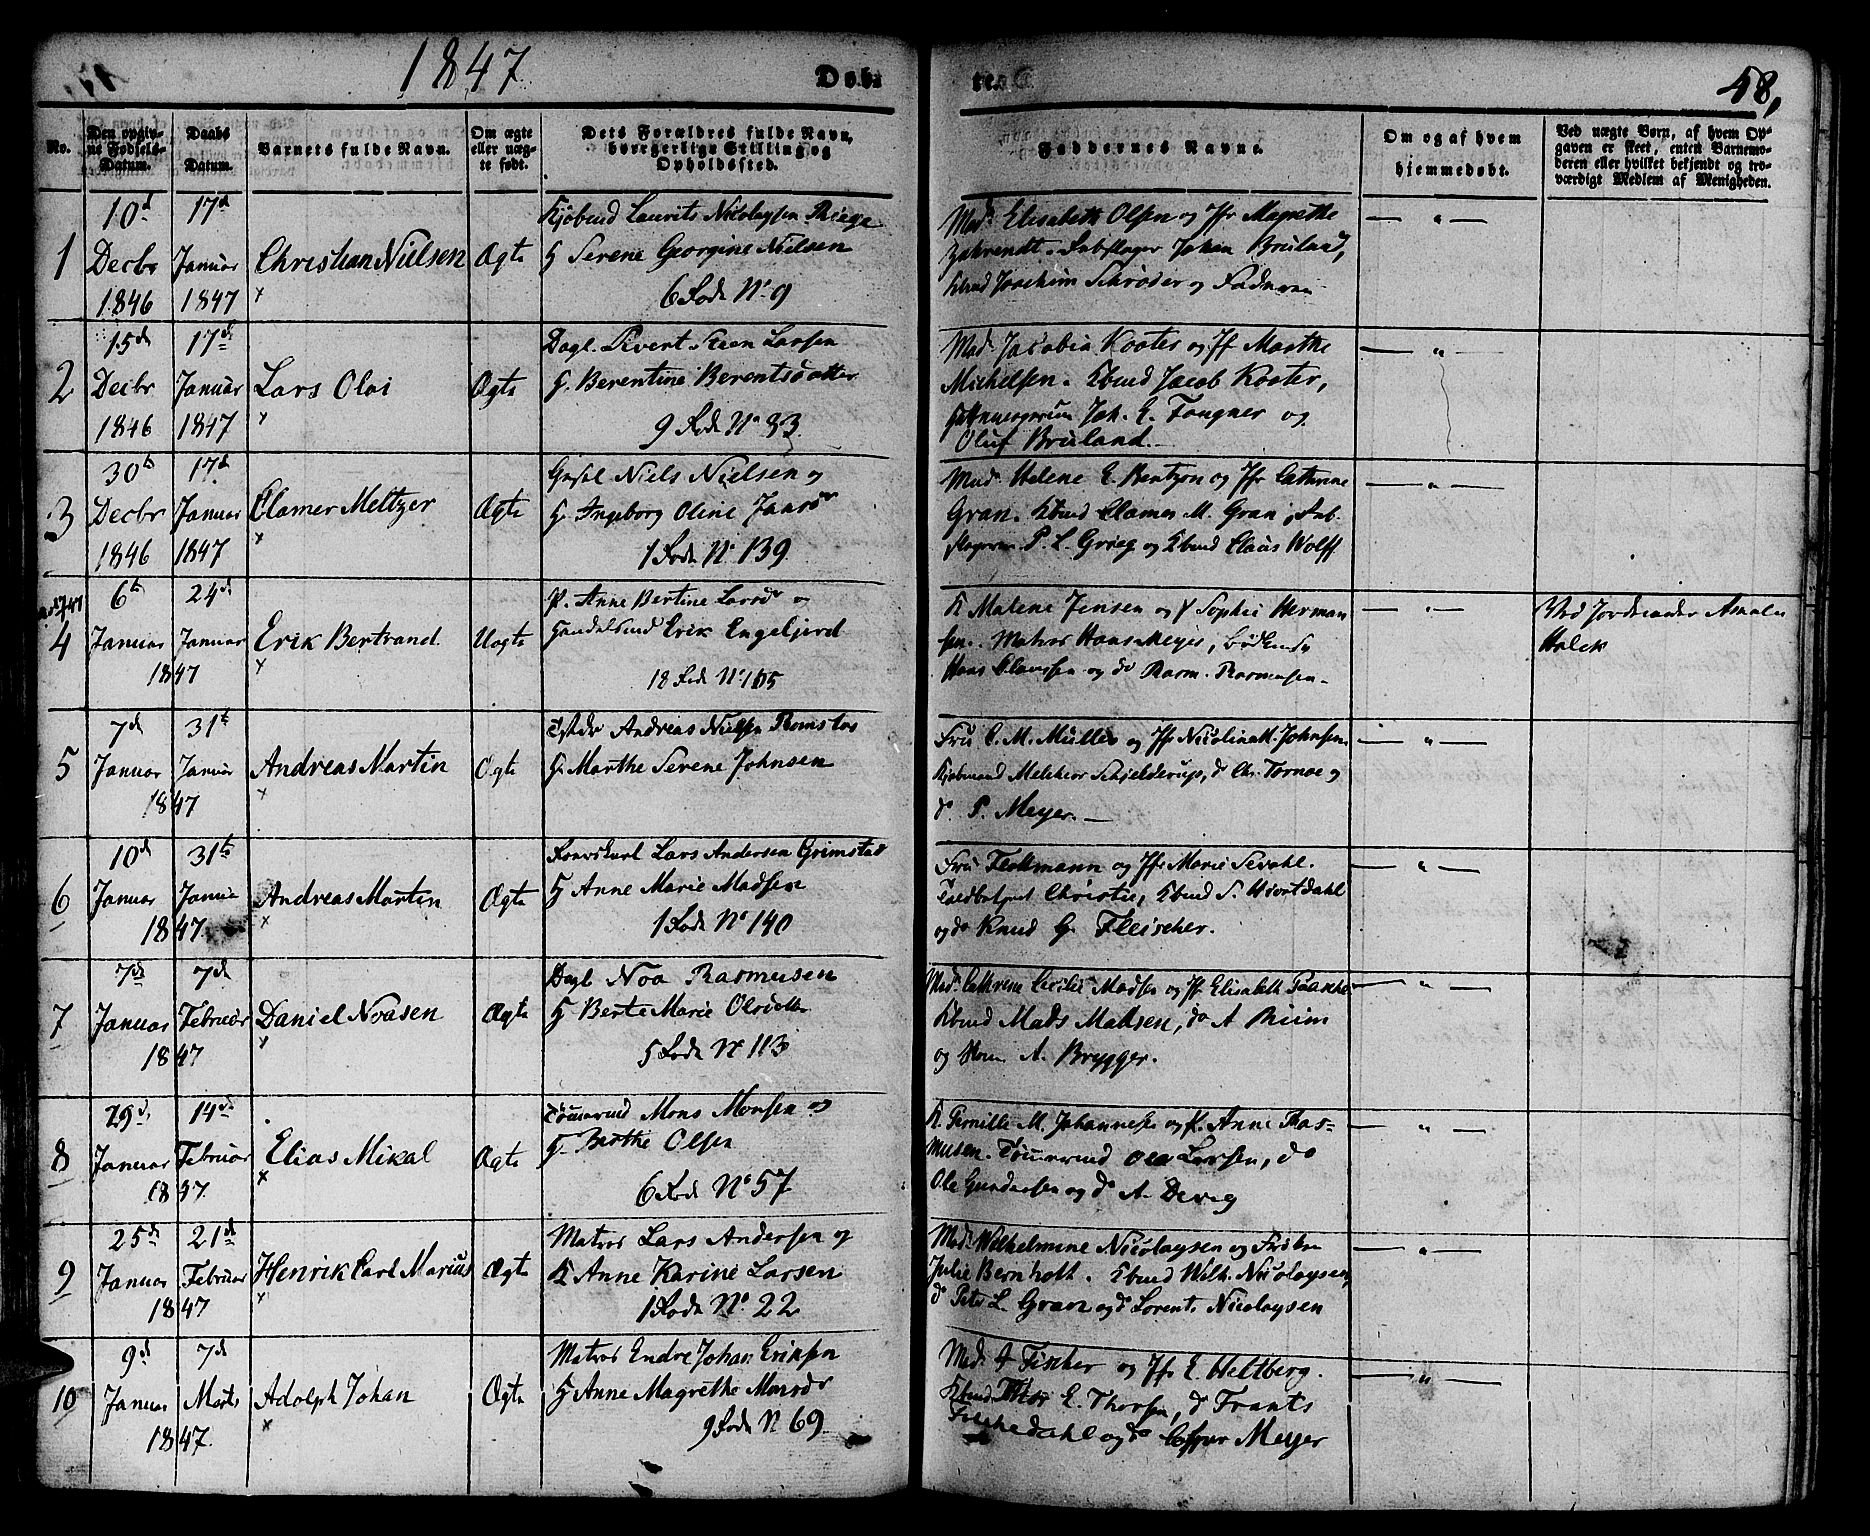 1847
Døb
te.
48,
No.
Den opgiv-
ne Fødsels-
Datum.
Daabs
Datum.
Barnets fulde Navn.
Om ægte
eller uæg-
te født.
Dets Forældres fulde Navn,
borgerlige Stilling og
Opholdssted.
Faddernes Navne.
Om og af hvem
hjemmedøbt.
Ved uægte Børn, af hvem Op-
gaven er skeet, enten Barnemo-
deren eller hvilket bekjendt og tro-
værdigt Medlem af Menigheden.
1
10d
Decbr
1846
17d
Januar
1847
Christian Nielsen
Ægte
Kjøbmd Laurits Nicolaysen
H Serene Georgine Nielsen
6 Rode No 9
Mad. Elisabeth Olsen og Jfr Magrethe
Johan Bruland,
Kbmd Joachim Schrøder og Faderen
2
15de
Decbr
1846
17d
Januar
1847
Lars Olai
Ægte
Dagl. Sivert Steen Larsen
H. Berentine Berentsdatter
9 Rode No 33.
Mad. Jacobia Kooter og Jf Marthe
Michelsen. Kbmd Jacob Kooter,
Joh. E. Fougner og
Oluf Bruland.
3
30te
Decbr
1846
17d
Januar
1847
Clamer Meltzer
Ægte
Niels Nielsen og
H. Ingeborg Oline
1 Rode No 139.
Mad. Helene E. Bentzon og Jfr Cathrine
Gran. Kbmd Clamer M. Gran,
P. L. Grieg og Kbmd Claus Wolff
4
6te
Januar
24d
Januar
1847
Erik Bertrand
Uægte
P. Anne Bertine og
Erik Engeljord
18 Rode No 165
K Malene Jensen og P Sophie Herman
sen. Matros Hans Meyer,
Hans Claussen og do Rasm. Rasmusen
Ved Jordmoder Amalia
Holck
5
7d
Januar
31te
Januar
1847
Andreas Martin
Ægte
Andreas Nielsen
H. Marthe Serene Johnsen
Fru C. M. Müller og Jfr Nicoline M. Johnsen
Kjøbmand Melchior Schjelderup, do Chr. Tornøe og
do P. Meyer.
6
10d
Januar
31te
Januar
1847
Andreas Martin
Ægte
Lars Andersen Grimstad
H Anne Marie Madsen
1 Rode No 140
Fru og Jfr Marie
Christie, Kbmd S. Hiortdahl
og do Knud G. Fleischer.
7
7de
Januar
7d
Februar
1847
Daniel Noasen
Ægte
Dagl Noa Rasmusen
H Berte Marie
5 Rode No 113
Mad. Cathrine Cecilie Madsen og Jf Elisabeth Paasche
Kbmd Mads Madsen, do A
og A. Brygger.
8
29d.
Januar
14de
Februar
1847.
Elias Mikal
Ægte
Tømmermd Mons Monsen og
H. Berthe Olsen
6 Rode No 57
K. Pernille M. Johannesen og P. Anne Ras-
musen. Tømmermd Ole Larsen, do
Ole Gundersen og do A.
9
25de
Januar
21de
Februar
1847
Henrik Carl Marius
Ægte
Matros Lars Andersen og
K Anne Karine Larsen
1 Rode No. 22
Mad. Wilhelmine Nicolaysen og Frøken
Julie Bernhoft. Kbmd Wilh. Nicolaysen,
do Peter L. Gran og do Lorents Nicolaysen
10
9d
Januar
7d
Marts
1847.
Adolph Johan
Ægte
Matros Endre Johan Eriksen
H Anne Magrethe
9 Rode No 69.
Mad. A Fischer og Jfr E. Heltberg.
Kbmd E. Thorsen, do Frants
og do Casper Meyer